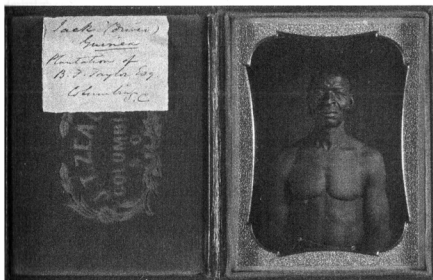 Jack (Driver)
Guinea
Plantation of
B. F. Taylor Esq
Columbia S.C.
T ZEA
COLUMBI
S O